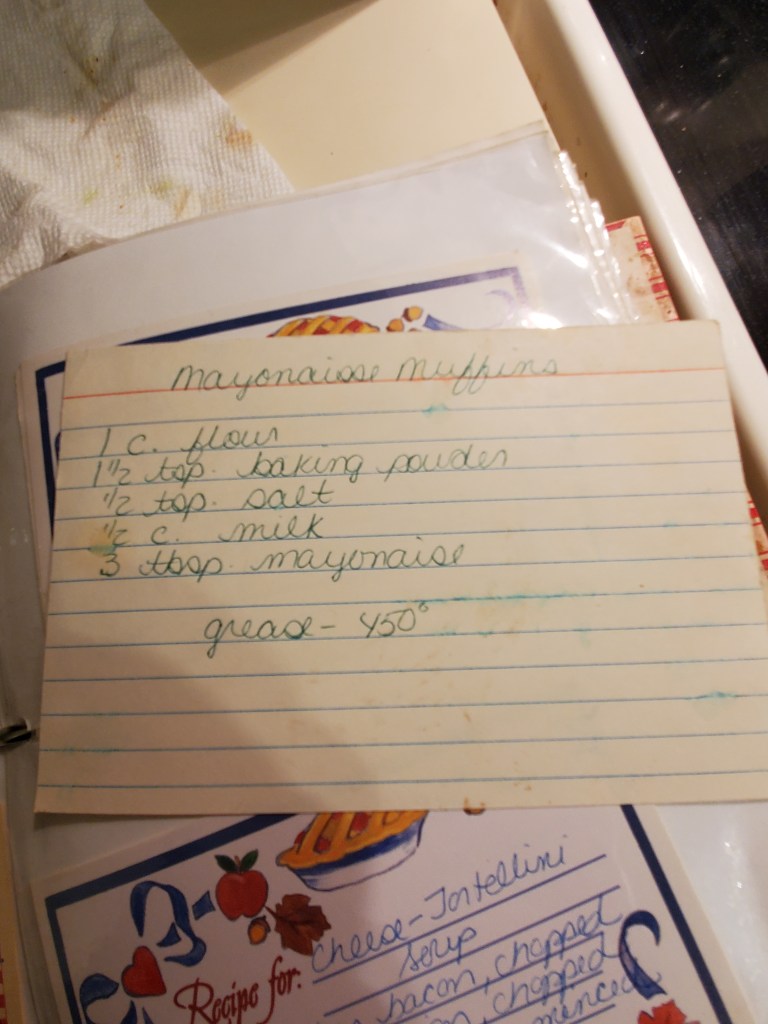 Mayonaisse Muffins
1 c. flour
1 1/2 tsp. baking powder
1/2 tsp. salt
1/2 c. milk
3 tbsp. mayonaise
grease - 450°
Recipe for: Cheese-Tortellini
Soup
bacon, chopped
chopped
minced